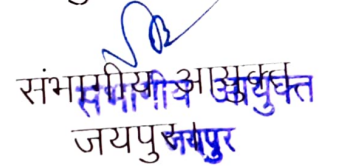 संभागीय आयुक्त
संभागीय आयुक्त
जयपुर
जयपुर